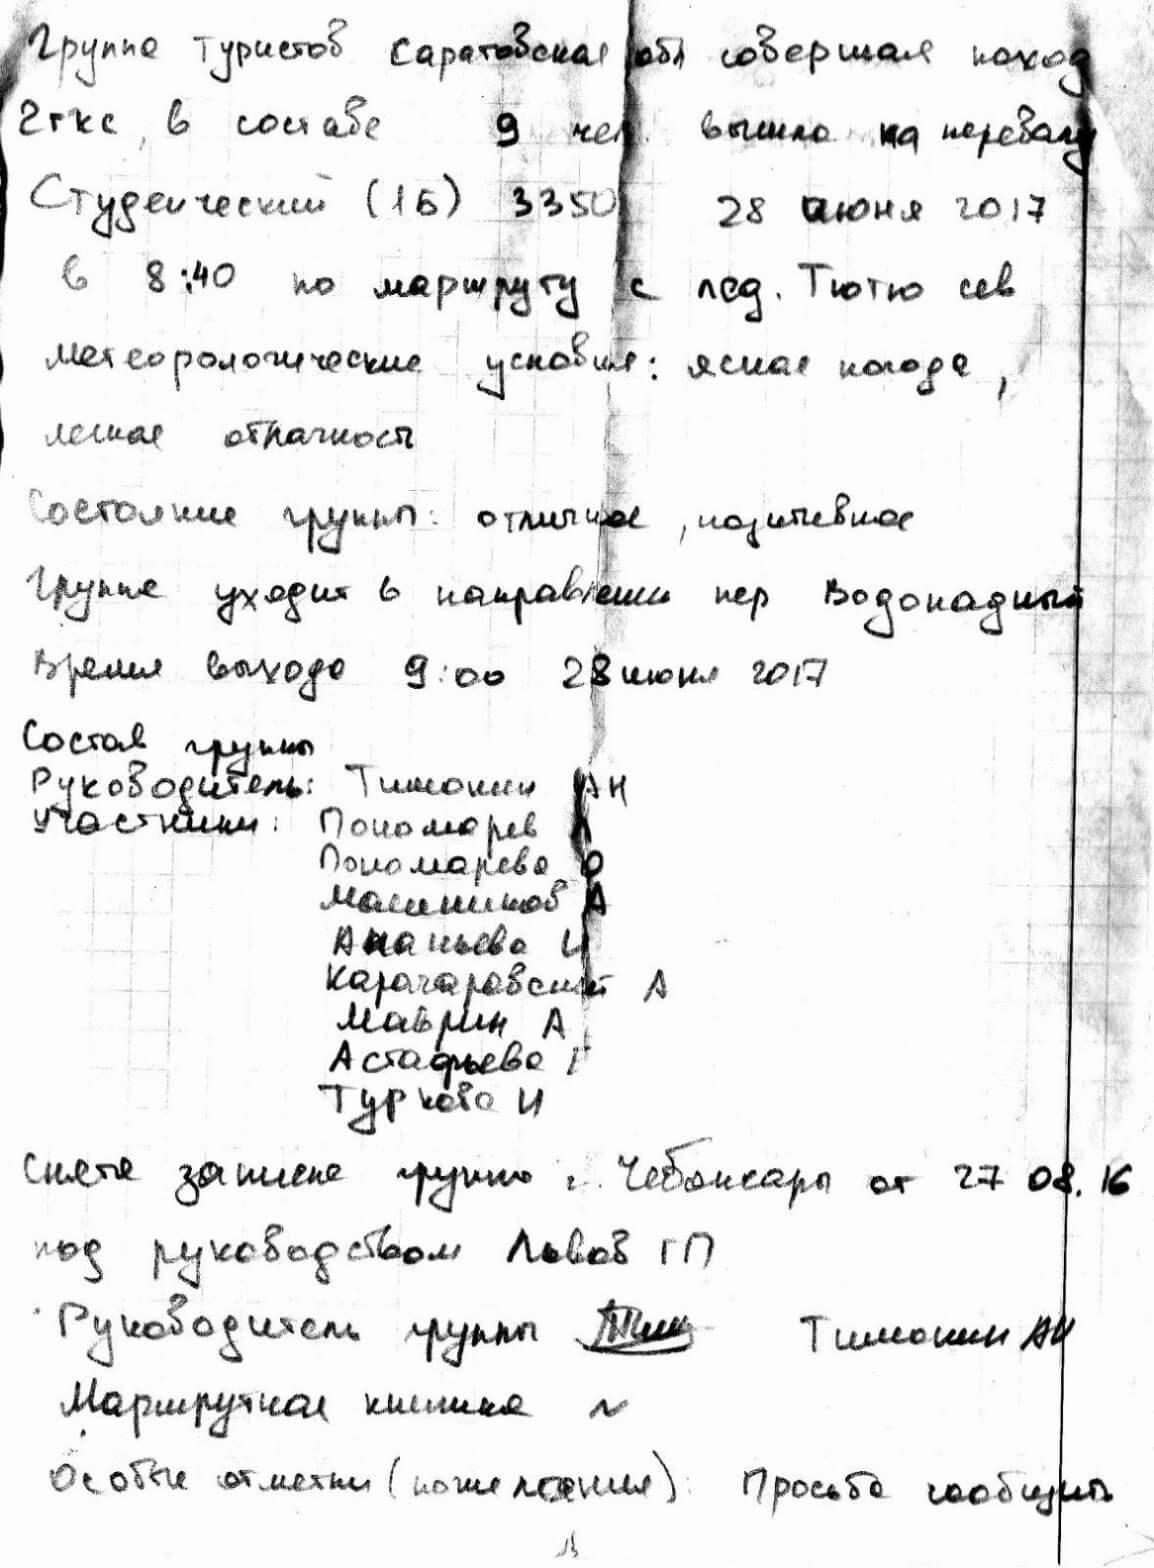 Группа туристов Саратовская обл совершая поход
2гкс, в составе 9 чел. вышла на перевал
Студенческий (1Б) 3350 28 июня 2017
в 8:40 по маршруту с лед. Тютю сев
метеорологические условия: ясная погода,
легкая облачность
Состояние группы: отличное, позитивное
Группа уходит в направлении пер Водопадный
Время выхода 9:00 28 июня 2017
Состав группы
Руководитель: Тимонин АН
Участники: Пономарев А
Пономарева О
Масленников А
Ананьева И
Карачаровский А
Маврин А
Астафьева Г
Туркова И
Снята записка группы г. Чебоксары от 27 08.16
под руководством Львов ГП
Руководитель группы Тимонин АН
Маршрутная книжка №
Особые отметки (пожелания): Просьба сообщить